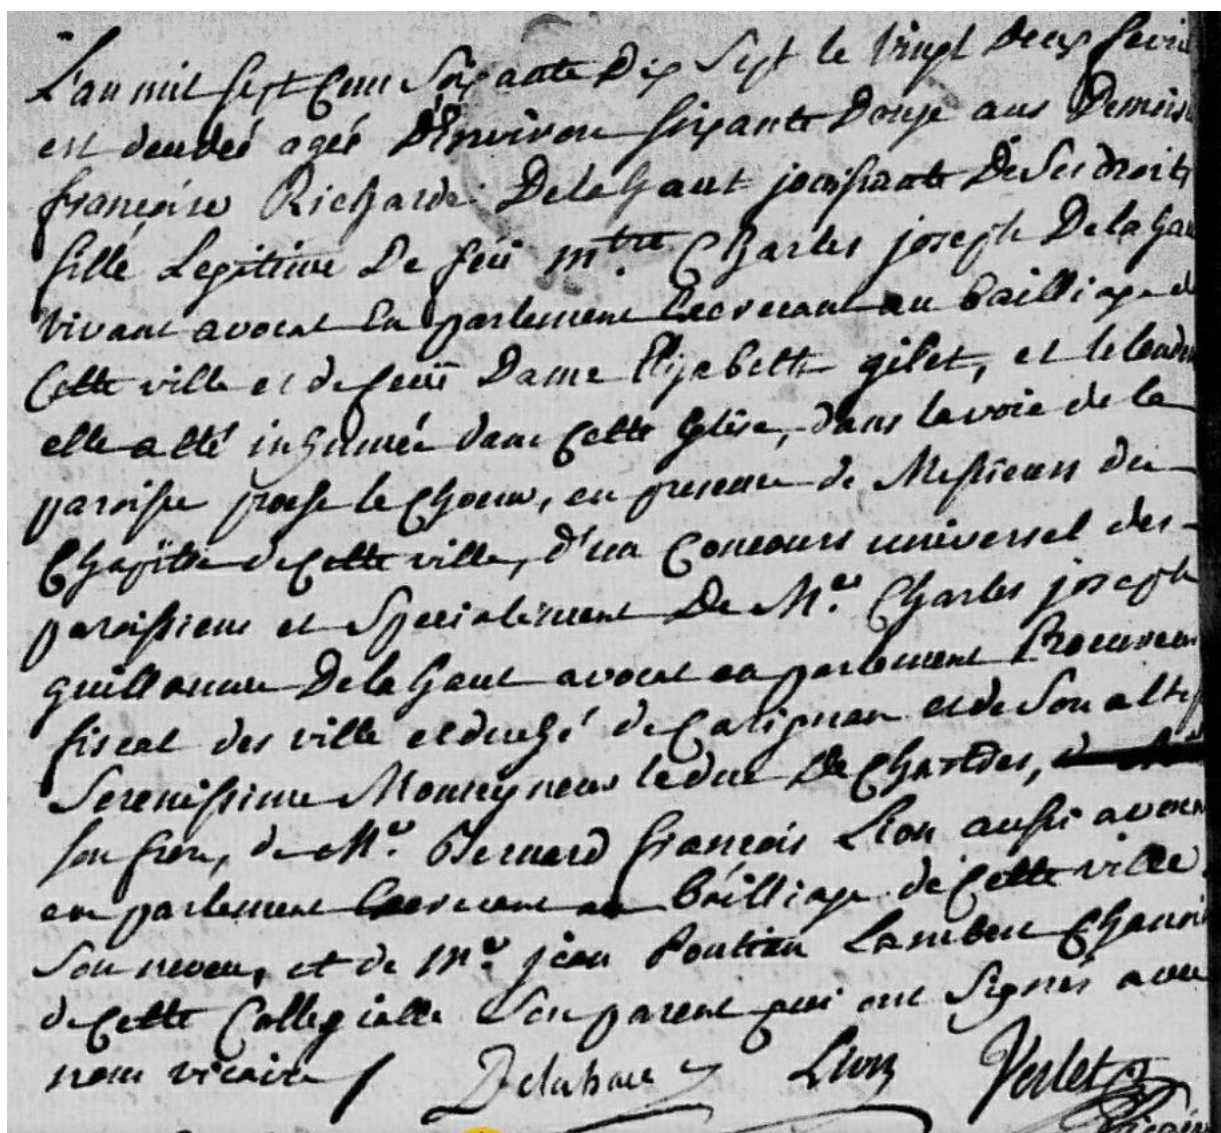 L'an mil sept cens soixante dix sept le vingt deux fevri
est decedeé ageé d'environ soixante douze ans Demois
françoise Richarde Delahaut jouissante De ses droits
fille Legitime De feü m.tre Charles joseph Delahau
vivant avocat en parlement Exerceant au bailliage de
Cette ville et de feüe Dame Elizabeth gilet, et le lende
elle a été inhumée dans Cette Eglise, dans la voie de la
paroisse proche le Choeur, en presence de Messieurs du
Chapitre de Cette ville, d'un Concours universel des
paroissiens et Specialement De M.e Charles joseph
guillaume Delahaut avocat en parlement Procureur
fiscal des ville et duché de Carignan et de Son altess
Serenissime Monseigneur le duc De Chartres,
son frere, de M.e Bernard françois Lion aussi avocat
en parlement Exerceant au bailliage de Cette ville
Son neveu, et de M.e jean Pontian Lambert Chanoi
de Cette Collegialle Son parent qui ont Signés avec
nous vicaire / Delahaut Lion Verlet
Vicaire